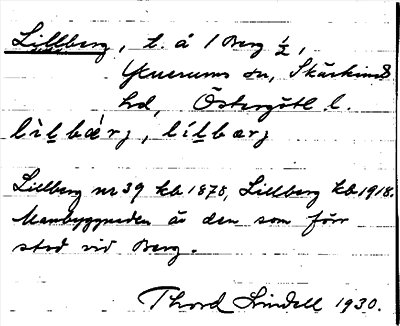 Lillberg, t. å 1 Berg ½,
Yxnerums sn, Skärkinds
hd, Östergötl l.
lìlbær̀j, lílbarj
Lillberg nr 39 kb 1878, Lillberg kb 1918.
Manbyggnaden är den som förr
stod vid Berg.
Thord Lindell 1930.